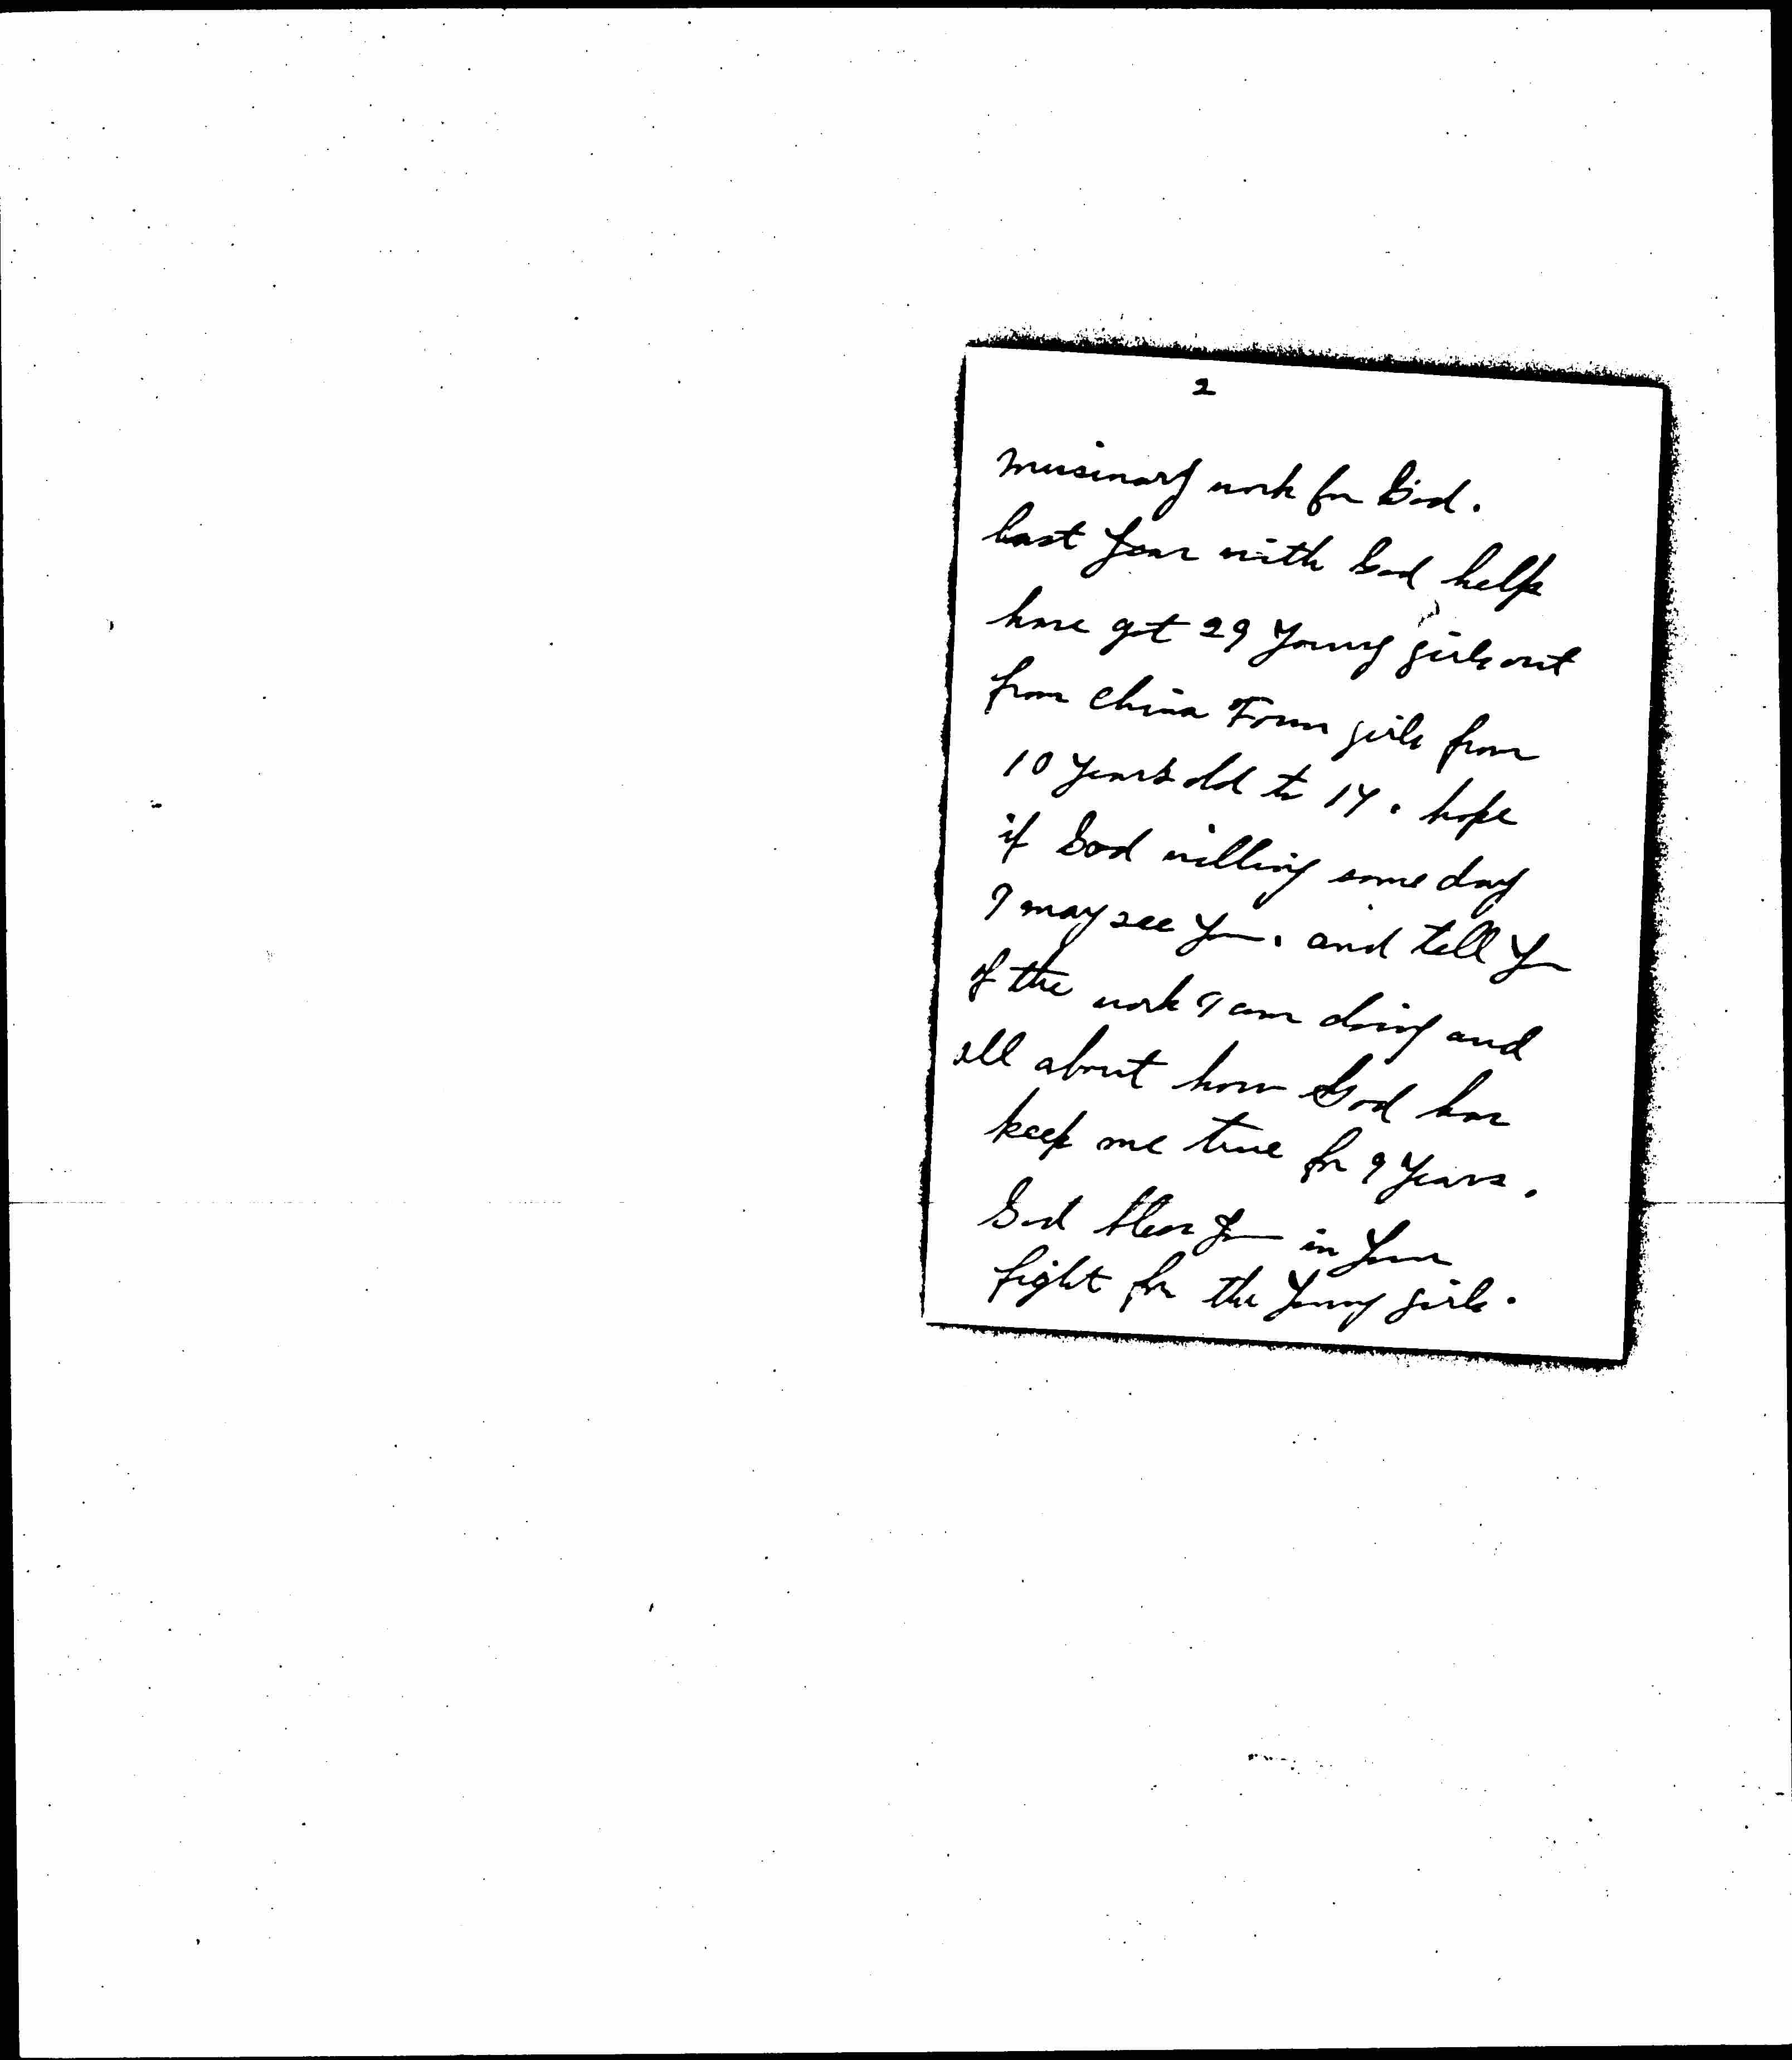 2
missinary work for God.
Last Year with God help
have got 29 Young girls out
from China Town girls from
10 Years old to 14. hope
if God willing some day
I may see You. and tell You
of the work I am doing and
all about how God has
keep me true for 9 Years.
God bless You in Your
fight for the Young girls.